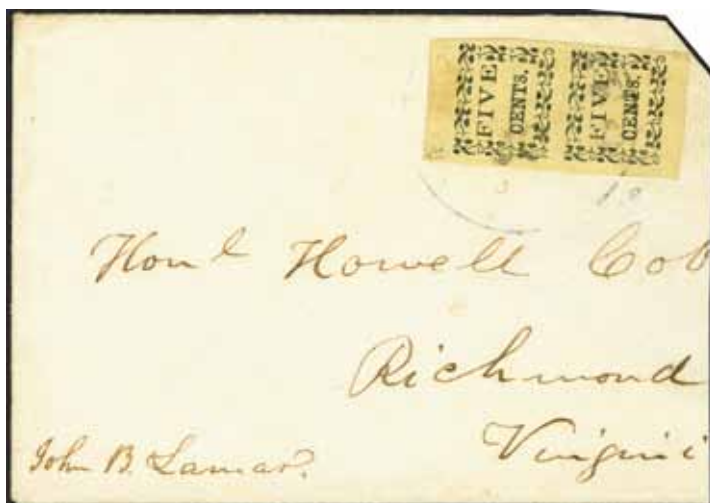 FIVE CENTS. FIVE CENTS.
Honl Howell Cob
Richmond
Virgini
John B. Lamar.